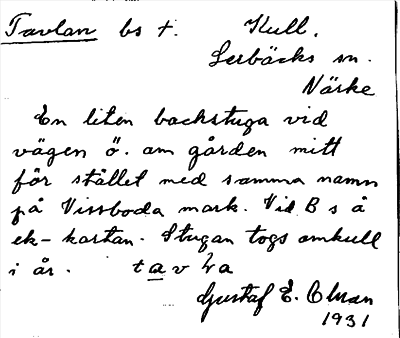 Tavlan bs t. Kull.
Lerbäcks sn.
Närke
En liten backstuga vid
vägen ö. om gården mitt
för stället med samma namn
på Vissboda mark. Vid B s å
ek-kartan. Stugan togs omkull
i år. tavla
Gustaf E.
1931